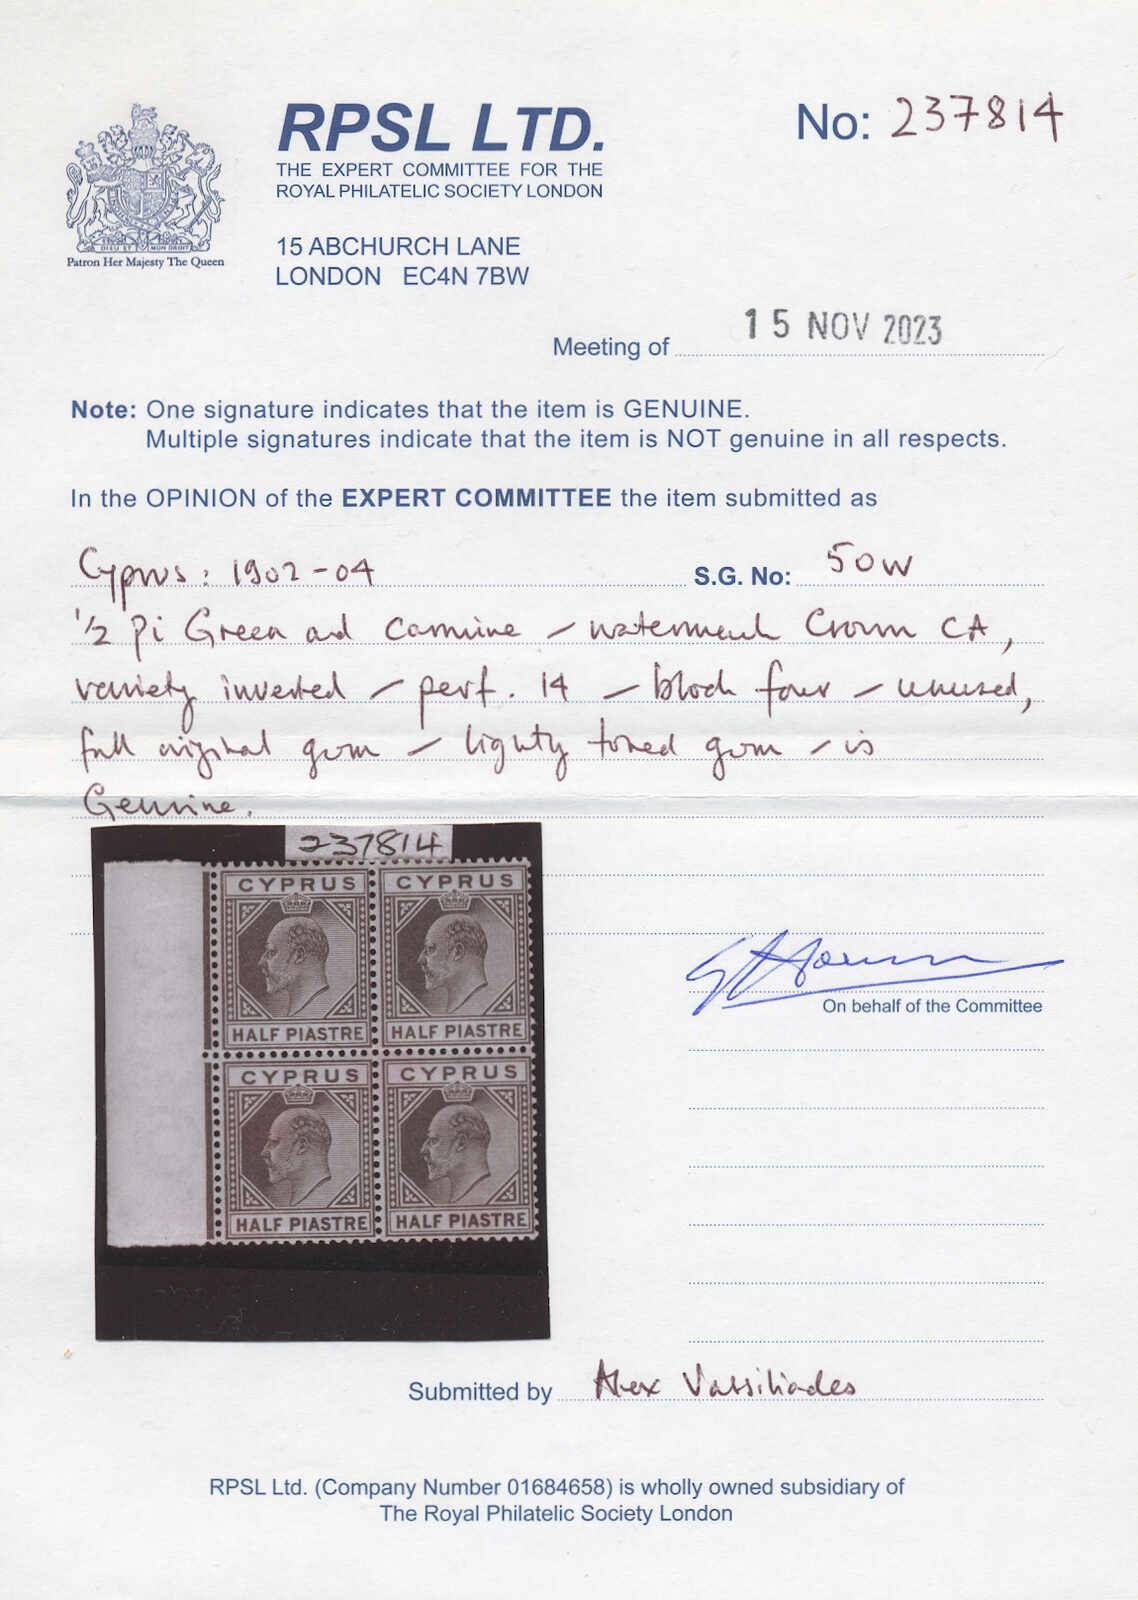 RPSL LTD.
THE EXPERT COMMITTEE FOR THE
ROYAL PHILATELIC SOCIETY LONDON
No: 237814
DIEU ET MON DROIT
Patron Her Majesty The Queen
15 ABCHURCH LANE
LONDON EC4N 7BW
Meeting of 15 NOV 2023
Note: One signature indicates that the item is GENUINE.
Multiple signatures indicate that the item is NOT genuine in all respects.
In the OPINION of the EXPERT COMMITTEE the item submitted as
Cyprus: 1902-04 S.G. No: 50w
1/2 pi Green and Carmine - watermark Crown CA,
variety inverted - perf. 14 - block four - unused,
full original gum - lightly toned gum - is
Genuine.
237814
CYPRUS CYPRUS
HALF PIASTRE HALF PIASTRE
CYPRUS CYPRUS
HALF PIASTRE HALF PIASTRE
On behalf of the Committee
Submitted by Alex Vassiliades
RPSL Ltd. (Company Number 01684658) is wholly owned subsidiary of
The Royal Philatelic Society London